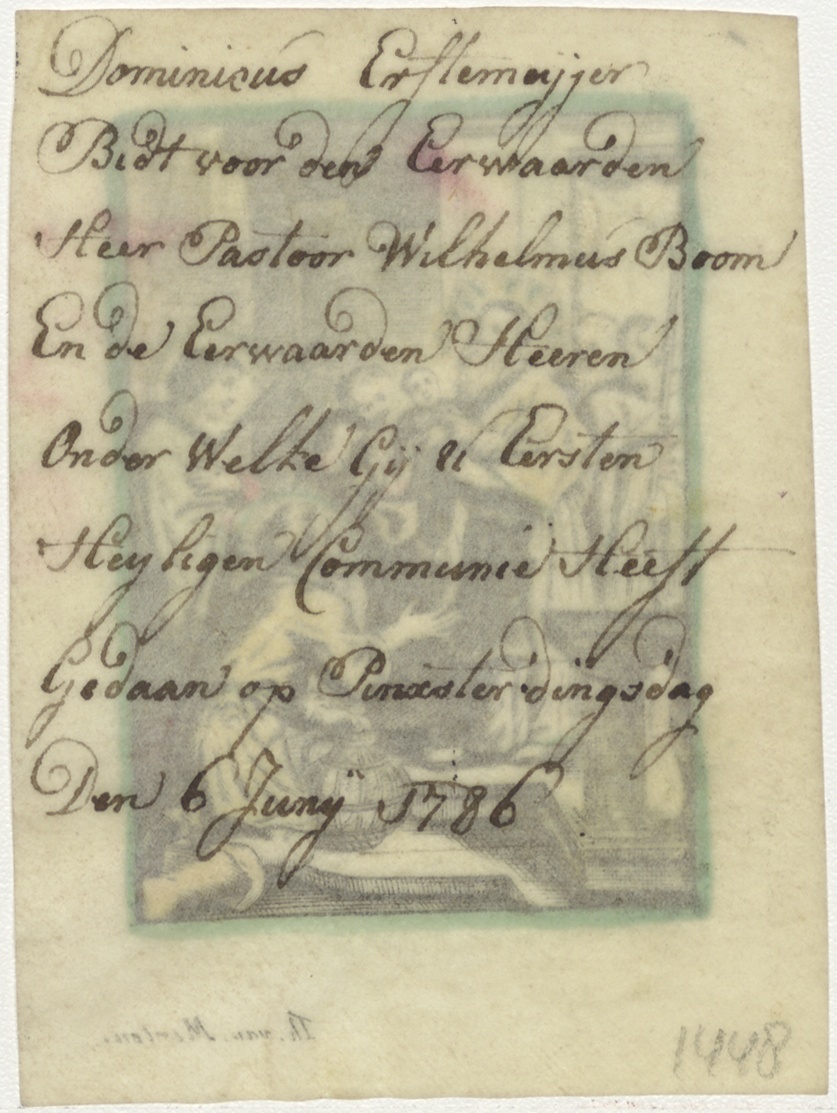 Dominicus Erstemeyjer
Bidt voor den Eerwaarden
Heer Pastoor Wilhelmus Boom
En de Eerwaarden Heeren
Onder Welke Gij U Eersten
Heyligen Communie Heeft
Gedaan op Pinxster dingsdag
Den 6 Junij 1786
1448